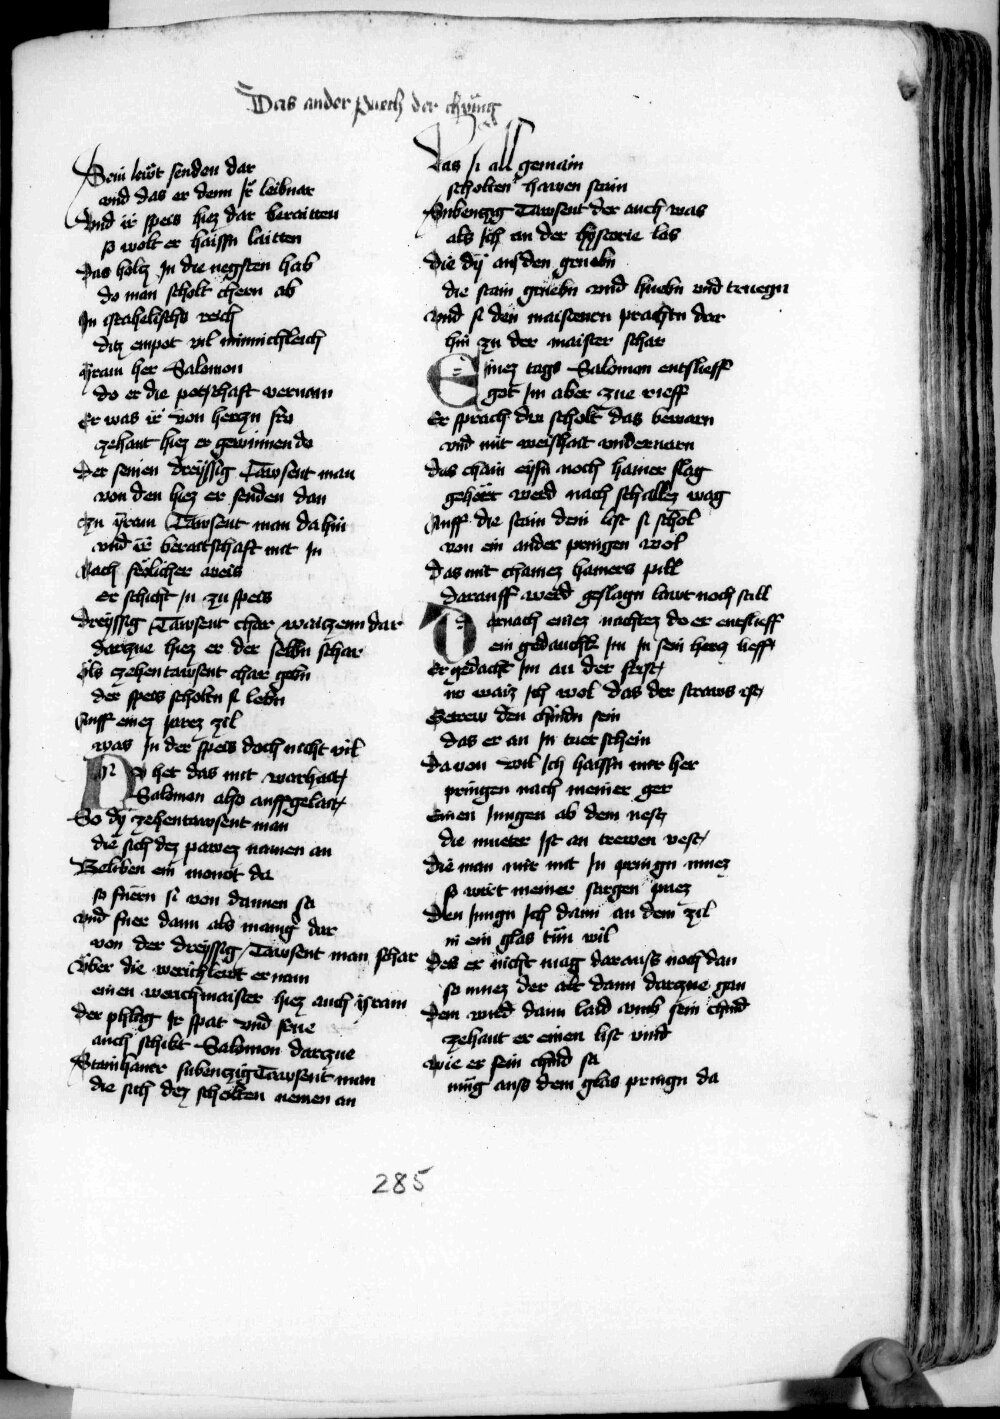 Das ander puech der chünig
Sein lewt senden dar
vnd das er denn ir leibnar
Vnd ir speis hiez dar beraitten
so wolt er haissn laitten
Das holtz In die negsten hab
do man scholt chern ab
In israhelischs reich
ditz enpot vil minnichleich
Yram her Salomon
do er die potschaft vernam
Er was ir von herczn fro
zehant hiez er gewinnen do
Der seinen dreyssig Tawsent man
von den hiez er senden dan
Zu yram Tawsent man da hin
vnd ir beraitschaft mit In
Nach frolicher weis
er schicht In zu speis
Dreyssig Tawsent char waiczenn dar
darzue hiez er der selbn schar
Öls zehentawsent char gebn
der speis scholtn si lebn
Auff einez Jarez zil
was In der speis doch nicht vil
Nv het das mit warhait
Salomon also auffgelait
So dy zehentawsent man
die sich dez pawez namen an
Beliben ein monet da
so fuern si von dannen sa
vnd fuer dann als manig dar
von der dreyssig Tawsent man schar
Über die werichlewt er nam
einen werichmaister hiez auch yram
Der phlag Ir spat vnd frue
auch schikt Salomon darzue
Stainhawer sibenczig Tawsent man
die sich dez scholten nemen an
Das si all gemain
scholten hawen stain
Sibenczig Tawsent der auch was
als Ich an der hystorie las
die dy aus den gruebn
die stain gruebn vnd huebn vnd truegn
vnd si den maistern prachtn dar
hin zu der maister schar
Einez tags Salomon entslieff
got Im aber zue rieff
Er sprach du scholt das bewarn
vnd mit weishait vndervarn
das chain eysn noch hamer slag
gehört werd nach schallez wag
Auff die stain dein list si schol
von ein ander pringen wol
Das mit chainez hamers pill
darauff werd geslagn lawt noch still
Darnach einez nachtez do er entslieff
ein gedanckh Im In sein hercz lieff
Er gedacht Im an der frist
nv waiz Ich wol das der strawss ist
Getrew den chindn sein
das er an In tuet schein
Da von wil Ich haissn mir her
pringen nach meiner ger
Einen Jungen ab dem nest
die mueter Ist an trewen vest
die man mir mit In pringn muez
so wirt meiner sargen puez
Den Jungn Ich dann an dem zil
in ein glas tün wil
Des er nicht mag darauss noch dan
so muez der alt dann darzue gan
Dem wird dann laid vmb sein chind
zehant er einen list vind
wie er sein chind sa
müg auss dem glas pringn da
285